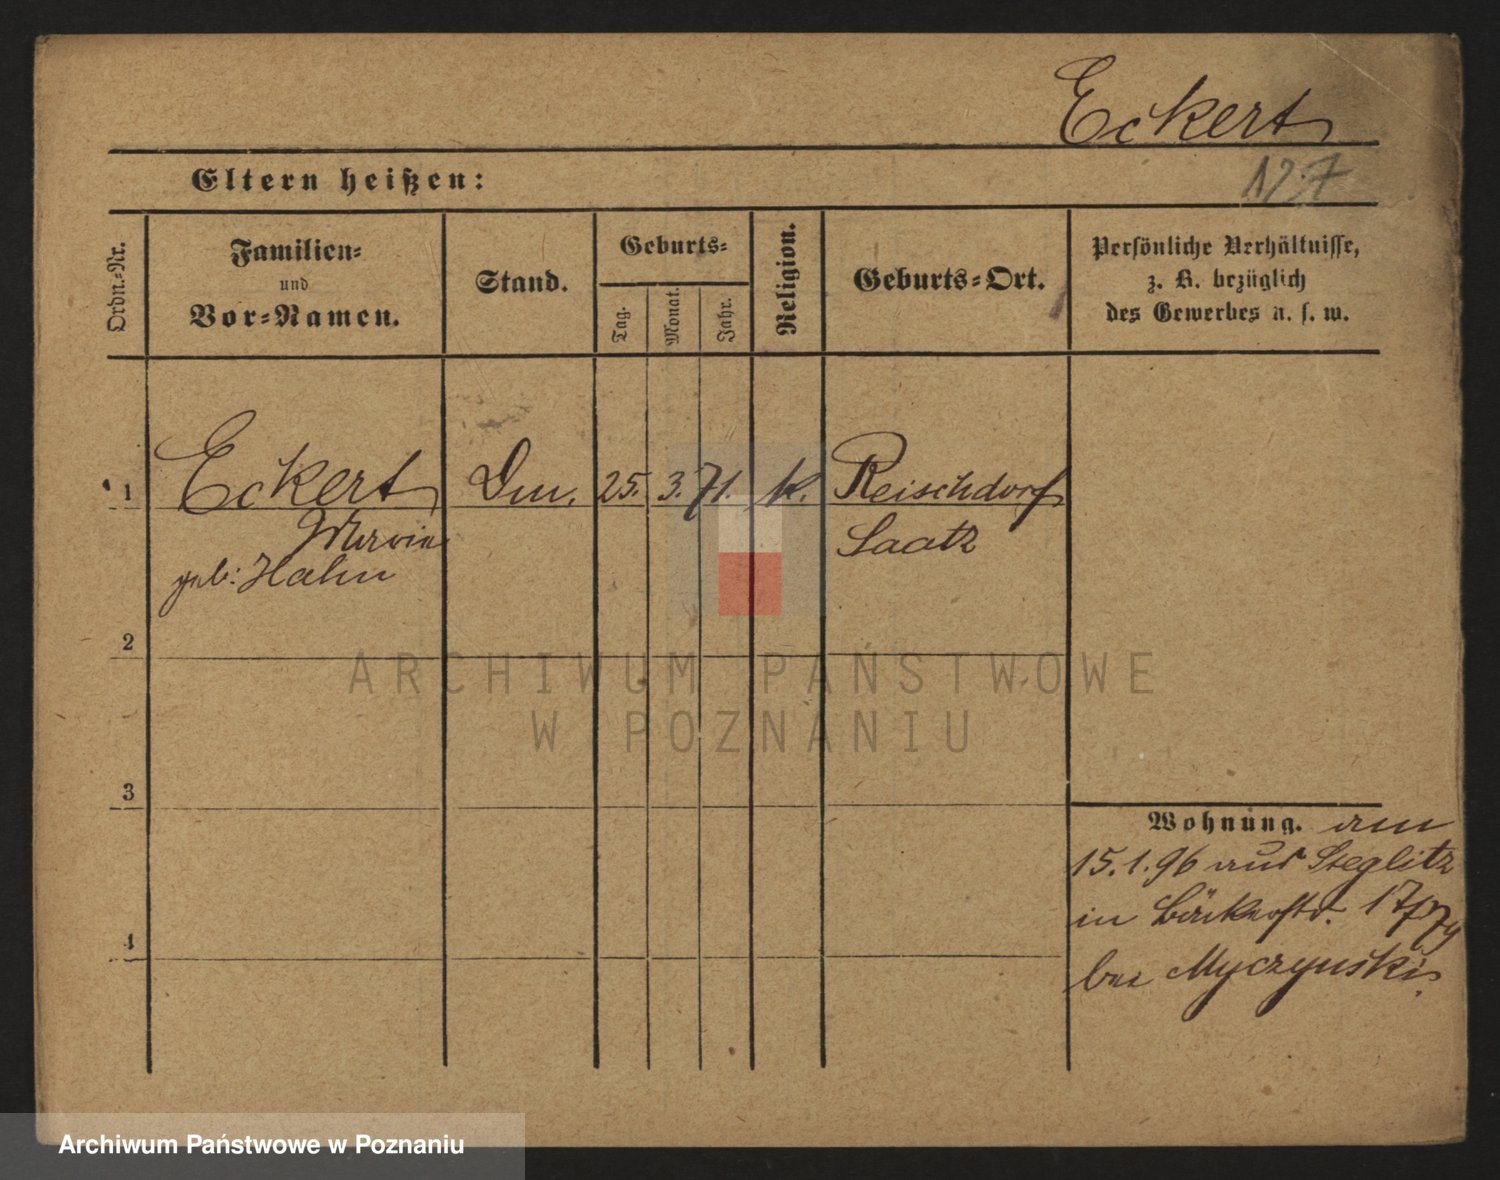 Eckert
127
Eltern heißen:
Ordn.-Nr.
Familien-
und
Vor-Namen.
Stand.
Geburts-
Tag.
Monat.
Jahr.
Religion.
Geburts-Ort.
Persönliche Verhältnisse,
z. B. bezüglich
des Gewerbes u. s. w.
1 Eckert 25. 3. 71. k. Reischdorf
Marie Saatz
geb: Hahn
2
3
4
Wohnung. am
15.1.96 aus Steglitz
in Bäckerstr. 17
bei Myczynski.
ARCHIWUM PAŃSTWOWE
W POZNANIU
Archiwum Państwowe w Poznaniu